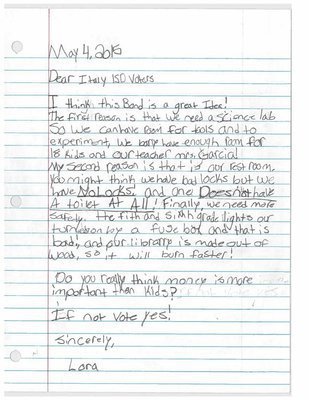 May 4, 2015
Dear Italy ISD Voters
I think this Bond is a great Idea!
The first reason is that we need a science lab
So we can have room for tools and to
experiment, we barly have enough room for
18 kids and our teacher mrs. Garcia!
My second reason is that is our restroom.
You might think we have bad locks but we
have No Locks! and one Does not have
A toilet At All! Finally, we need more
safety. the fifth and sixth grade lights our
turned on by a fuse box and that is
bad! and our library is made out of
wood, so it will burn faster!
Do you really think money is more
important than kids?
If not vote yes!
Sincerely,
Lora